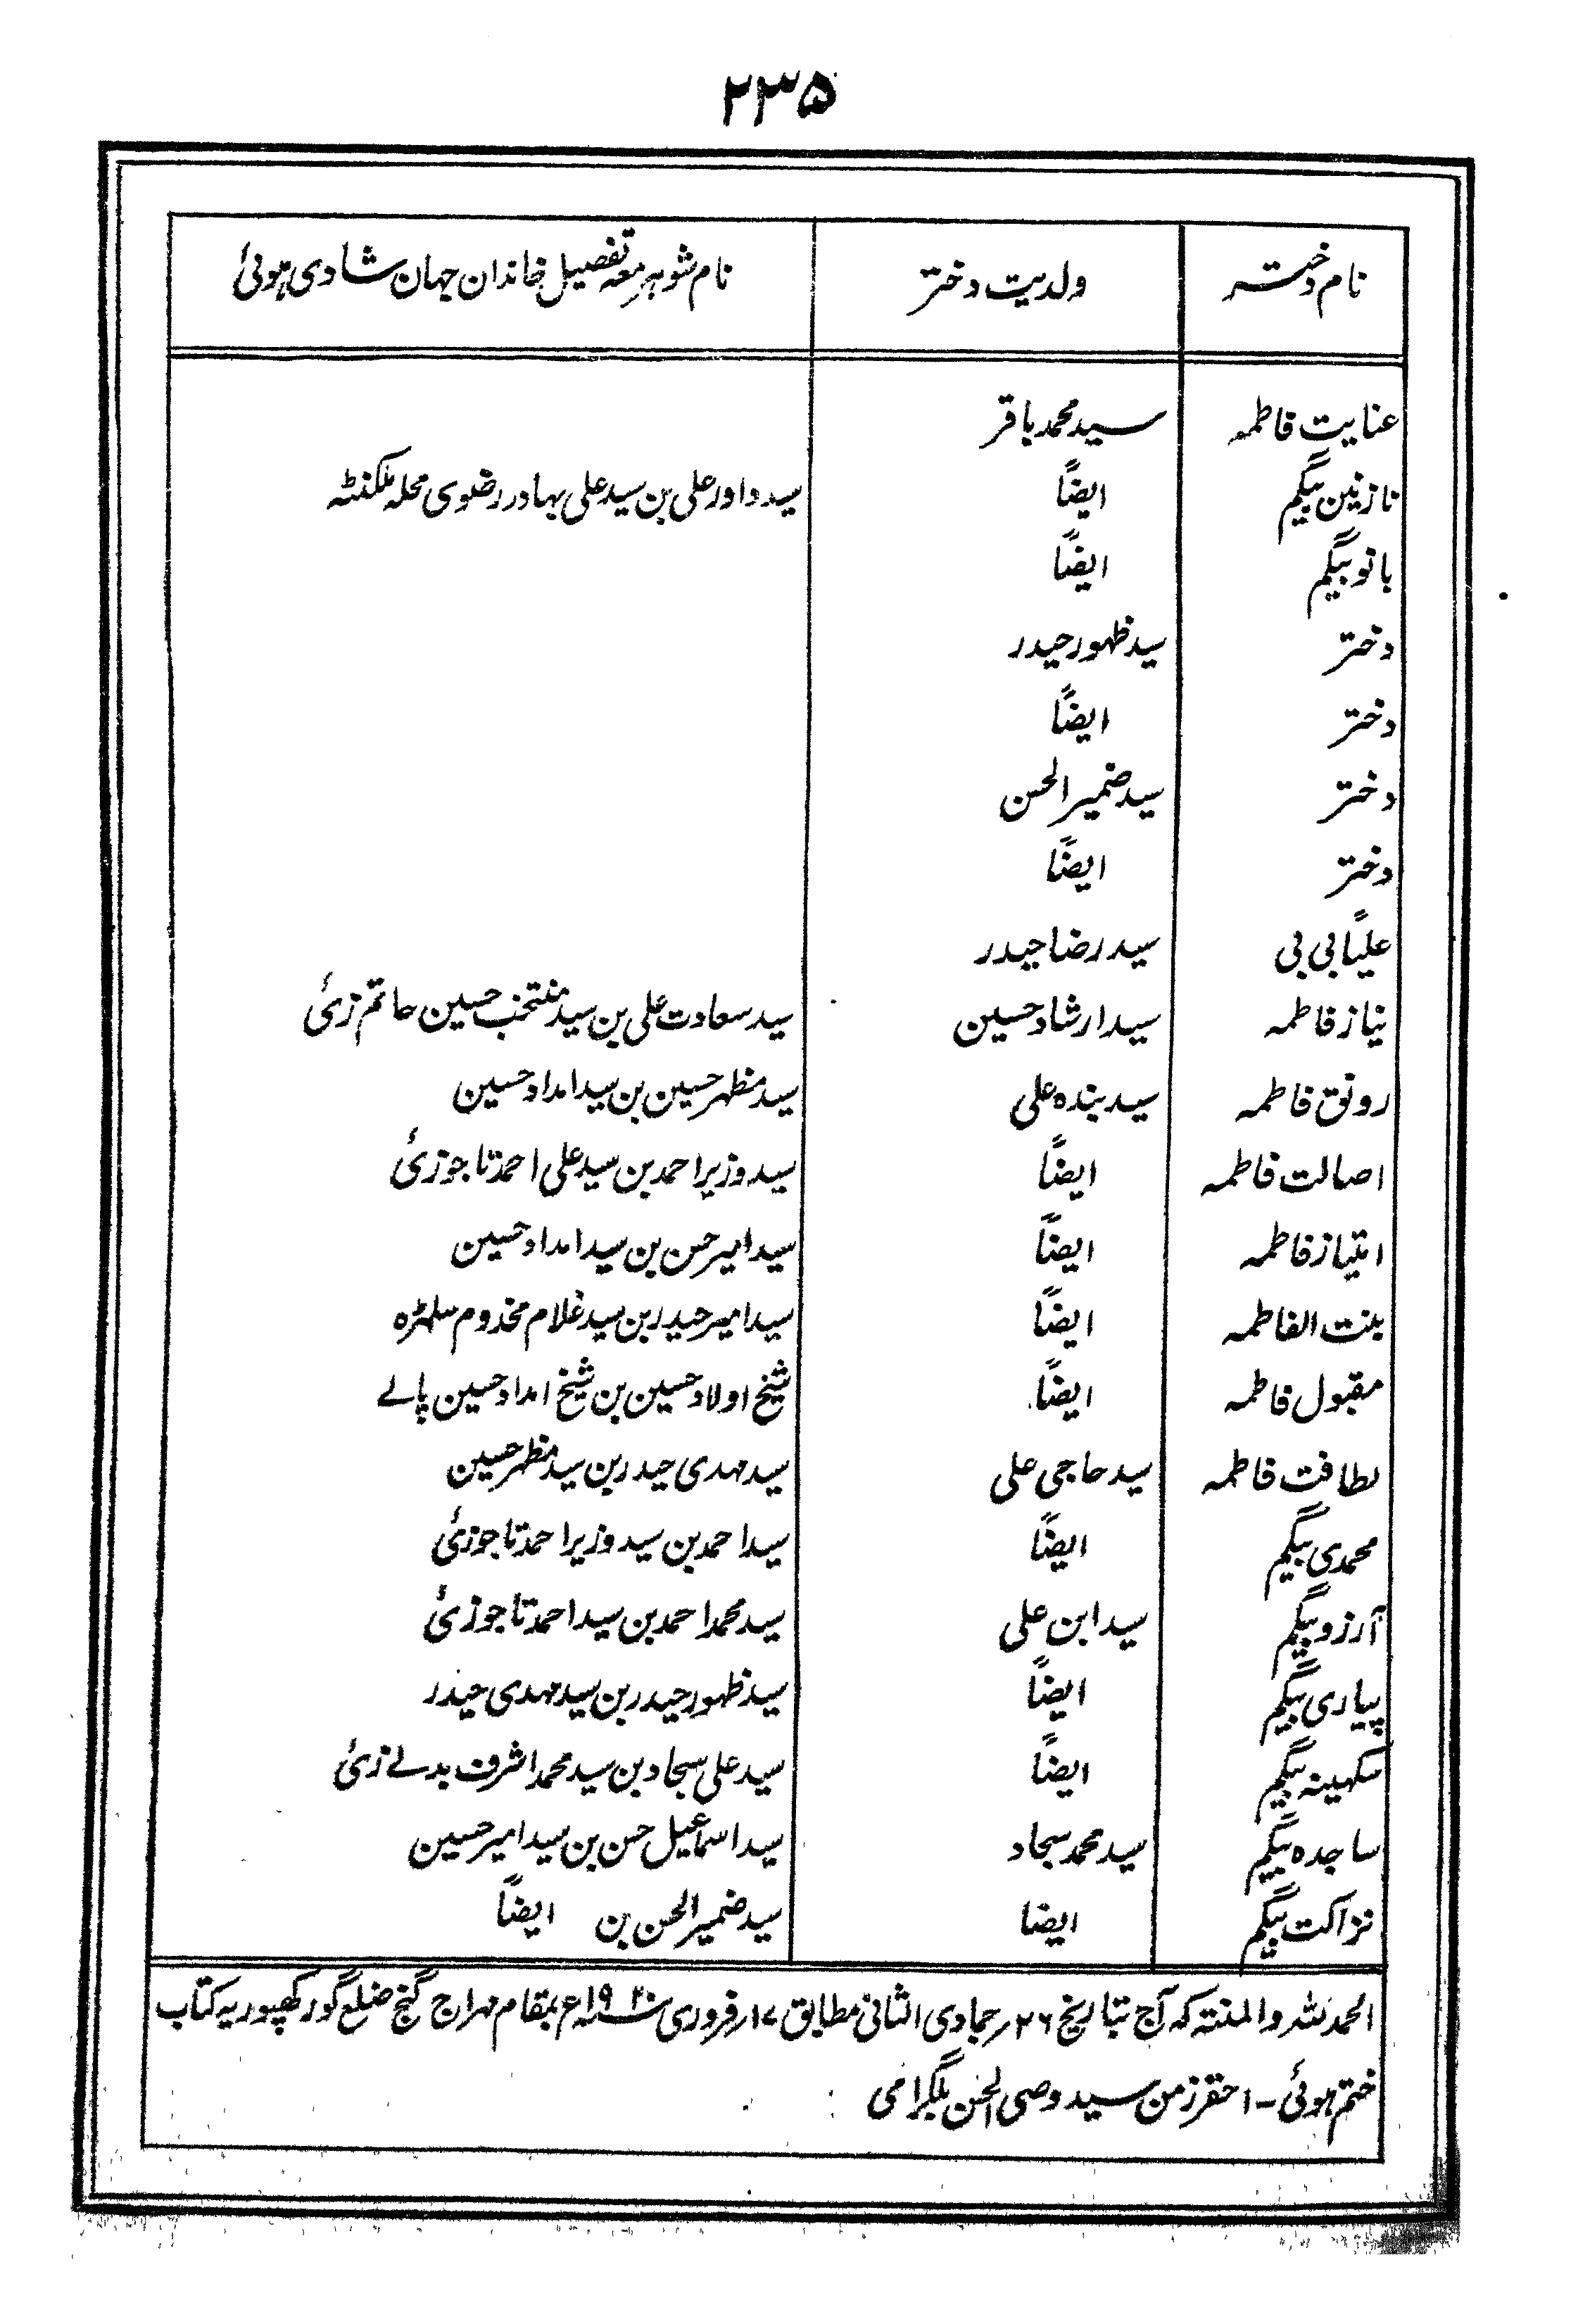 ۲۳۵
نام دختر ولدیت دختر نام شوہر معہ تفصیل خاندان جہان شادی ہوئی
عنایت فاطمہ سید محمد باقر
نازنین بیگم ایضاً سید داور علی بن سید علی بہادر رضوی محلہ ملکنٹہ
بانو بیگم ایضاً
دختر سید ظہور حیدر
دختر ایضاً
دختر سید ضمیر الحسن
دختر ایضاً
علیًا بی بی سید رضا حیدر
نیاز فاطمہ سید ارشاد حسین سید سعادت علی بن سید منتخب حسین حاتم زئی
رونق فاطمہ سید بندہ علی سید مظہر حسین بن سید امداد حسین
اصالت فاطمہ ایضاً سید وزیر احمد بن سید علی احمد تاجوزئی
امتیاز فاطمہ ایضاً سید امیر حسن بن سید امداد حسین
بنت الفاطمہ ایضاً سید امیر حیدر بن سید غلام مخدوم سلہڑہ
مقبول فاطمہ ایضاً شیخ اولاد حسین بن شیخ امداد حسین پالے
لطافت فاطمہ سید حاجی علی سید مہدی حیدر بن سید مظہر حسین
محمدی بیگم ایضاً سید احمد بن سید وزیر احمد تاجوزئی
آرزو بیگم سید ابن علی سید محمد احمد بن سید احمد تاجوزئی
پیاری بیگم ایضاً سید ظہور حیدر بن سید مہدی حیدر
سکہینہ بیگم ایضاً سید علی سجاد بن سید محمد اشرف بدلے زئی
ساجدہ بیگم سید محمد سجاد سید اسماعیل حسن بن سید امیر حسین
نزاکت بیگم ایضا سید ضمیر الحسن بن ایضاً
الحمد للہ والمنتہ کہ آج بتاریخ ۲۶؍ جمادی الثانی مطابق ۱۷؍ فروری ۱۹۲۰ء بمقام مہراج گنج ضلع گورکھپور یہ کتاب
ختم ہوئی ۔ احقر زمن سید وصی الحسن بلگرامی